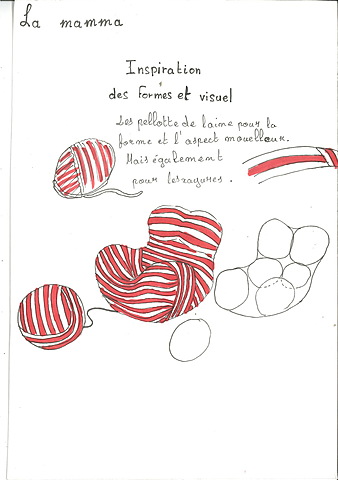 La mamma
Inspiration
des formes et visuel
Les pellotte de laine pour la
forme et l'aspect mouelleux.
Mais également
pour les rayures.